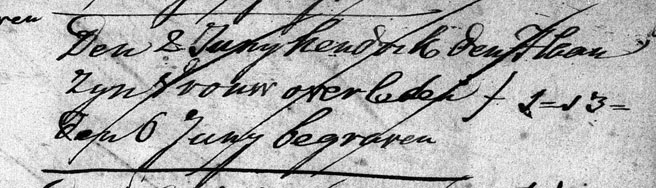 ren
Den 2 Juny Hendrik den Haan
Zyn Vrouw overleden f 1=13=
den 6 Juny begraven